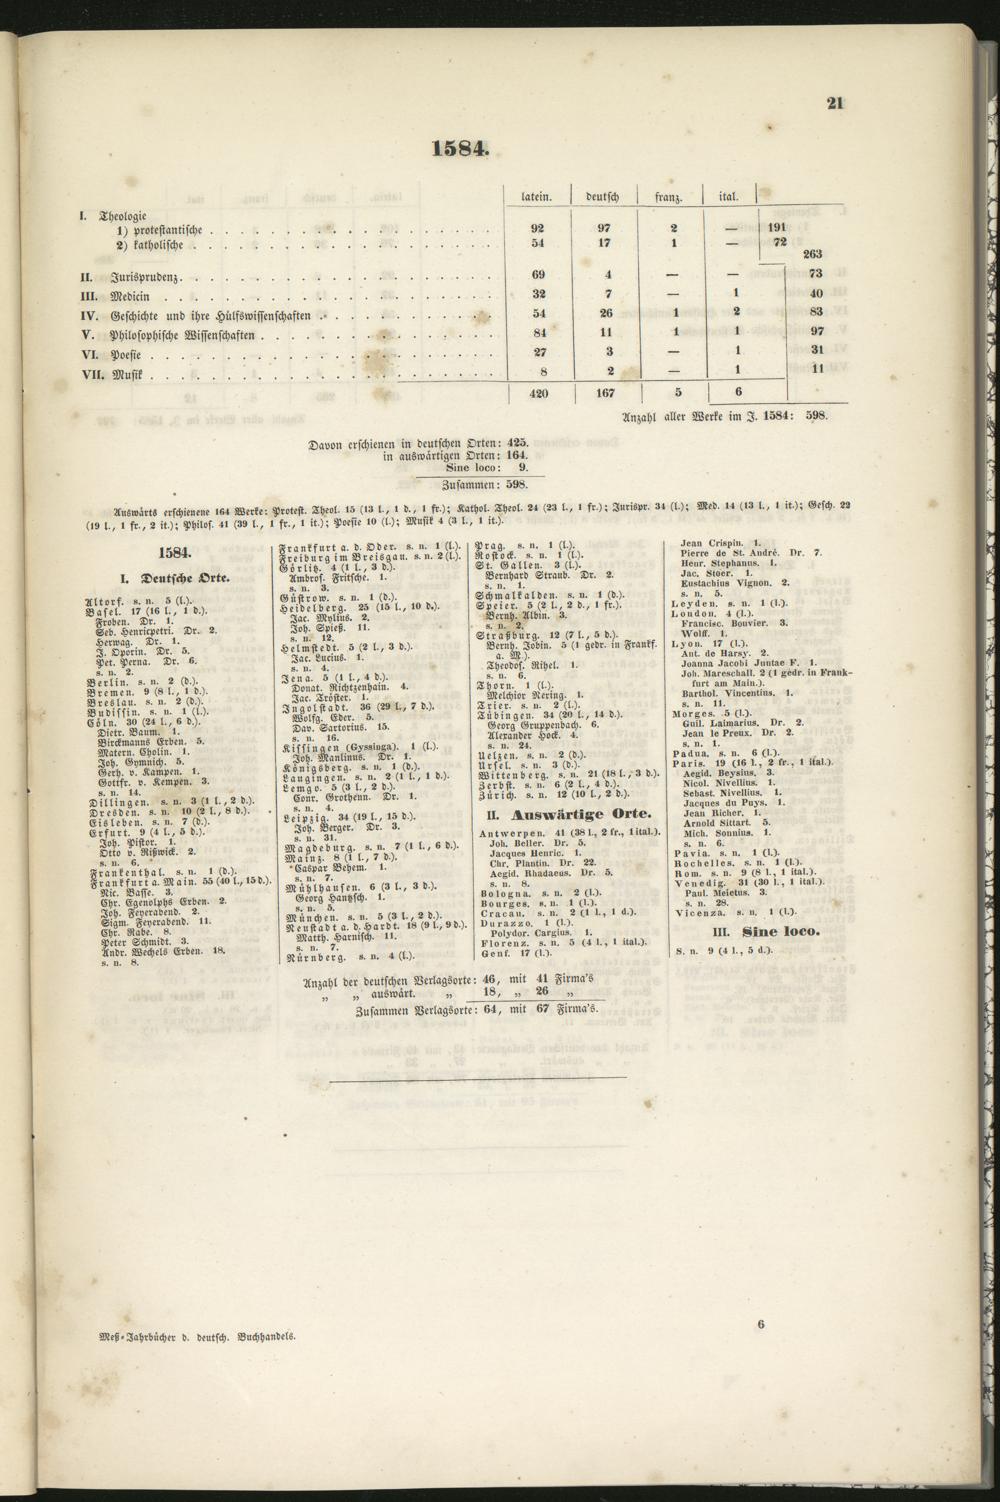 21
1584.
latein. deutsch franz. ital.
I. Theologie
1) protestantische 92 97 2 — 191
2) katholische 54 17 1 — 72
263
II. Jurisprudenz. 69 4 — — 73
III. Medicin 32 7 — 1 40
IV. Geschichte und ihre Hülfswissenschaften 54 26 1 2 83
V. Philosophische Wissenschaften 84 11 1 1 97
VI. Poesie 27 3 — 1 31
VII. Musik 8 2 — 1 11
420 167 5 6
Anzahl aller Werke im J. 1584: 598.
Davon erschienen in deutschen Orten: 425.
in auswärtigen Orten: 164.
Sine loco: 9.
Zusammen: 598.
Auswärts erschienene 164 Werke: Protest. Theol. 15 (13 l., 1 d., 1 fr.); Kathol. Theol. 24 (23 l., 1 fr.); Jurispr. 34 (l.); Med. 14 (13 l., 1 it.); Gesch. 22
(19 l., 1 fr., 2 it.); Philos. 41 (39 l., 1 fr., 1 it.); Poesie 10 (l.); Musik 4 (3 l., 1 it.).
1584.
I. Deutsche Orte.
Altorf. s. n. 5 (l.).
Basel. 17 (16 l., 1 d.).
Froben. Dr. 1.
Seb. Henricpetri. Dr. 2.
Herwag. Dr. 1.
J. Oporin. Dr. 5.
Pet. Perna. Dr. 6.
s. n. 2.
Berlin. s. n. 2 (d.).
Bremen. 9 (8 l., 1 d.).
Breslau. s. n. 2 (d.).
Budissin. s. n. 1 (l.).
Cöln. 30 (24 l., 6 d.).
Dietr. Baum. 1.
Birckmanns Erben. 5.
Matern. Cholin. 1.
Joh. Gymnich. 5.
Gerh. v. Kampen. 1.
Gottfr. v. Kempen. 3.
s. n. 14.
Dillingen. s. n. 3 (1 l., 2 d.).
Dresden. s. n. 10 (2 l., 8 d.).
Eisleben. s. n. 7 (d.).
Erfurt. 9 (4 l., 5 d.).
Joh. Pistor. 1.
Otto v. Rißwick. 2.
s. n. 6.
Frankenthal. s. n. 1 (d.).
Frankfurt a. Main. 55 (40 l., 15 d.).
Nic. Basse. 3.
Chr. Egenolphs Erben. 2.
Joh. Feyerabend. 2.
Sigm. Feyerabend. 11.
Chr. Rabe. 8.
Peter Schmidt. 3.
Andr. Wechels Erben. 18.
s. n. 8.
Frankfurt a. d. Oder. s. n. 1 (l.).
Freiburg im Breisgau. s. n. 2 (l.).
Görlitz. 4 (1 l., 3 d.).
Ambros. Fritsche. 1.
s. n. 3.
Güstrow. s. n. 1 (d.).
Heidelberg. 25 (15 l., 10 d.).
Jac. Mylius. 2.
Joh. Spieß. 11.
s. n. 12.
Helmstedt. 5 (2 l., 3 d.).
Jac. Lucius. 1.
s. n. 4.
Jena. 5 (1 l., 4 d.).
Donat. Richtzenhain. 4.
Jac. Tröster. 1.
Ingolstadt. 36 (29 l., 7 d.).
Wolfg. Eder. 5.
Dav. Sartorius. 15.
s. n. 16.
Kissingen (Gyssinga). 1 (l.).
Joh. Manlinus. Dr. 1.
Königsberg. s. n. 1 (d.).
Laugingen. s. n. 2 (1 l., 1 d.).
Lemgo. 5 (3 l., 2 d.).
Conr. Grothenn. Dr. 1.
s. n. 4.
Leipzig. 34 (19 l., 15 d.).
Joh. Berger. Dr. 3.
s. n. 31.
Magdeburg. s. n. 7 (1 l., 6 d.).
Mainz. 8 (1 l., 7 d.).
Caspar Behem. 1.
s. n. 7.
Mühlhausen. 6 (3 l., 3 d.).
Georg Hantzsch. 1.
s. n. 5.
München. s. n. 5 (3 l., 2 d.).
Neustadt a. d. Hardt. 18 (9 l., 9 d.).
Matth. Harnisch. 11.
s. n. 7.
Nürnberg. s. n. 4 (l.).
Prag. s. n. 1 (l.).
Rostock. s. n. 1 (l.).
St. Gallen. 3 (l.).
Bernhard Straub. Dr. 2.
s. n. 1.
Schmalkalden. s. n. 1 (d.).
Speier. 5 (2 l., 2 d., 1 fr.).
Bernh. Albin. 3.
s. n. 2.
Straßburg. 12 (7 l., 5 d.).
Bernh. Jobin. 5 (1 gedr. in Frankf.
a. M.).
Theodos. Rihel. 1.
s. n. 6.
Thorn. 1 (l.).
Melchior Nering. 1.
Trier. s. n. 2 (l.).
Tübingen. 34 (20 l., 14 d.).
Georg Gruppenbach. 6.
Alexander Hock. 4.
s. n. 24.
Uelzen. s. n. 2 (d.).
Ursel. s. n. 3 (d.).
Wittenberg. s. n. 21 (18 l., 3 d.).
Zerbst. s. n. 6 (2 l., 4 d.).
Zürich. s. n. 12 (10 l., 2 d.).
II. Auswärtige Orte.
Antwerpen. 41 (38 l., 2 fr., 1 ital.).
Joh. Beller. Dr. 5.
Jacques Henric. 1.
Chr. Plantin. Dr. 22.
Aegid. Rhadaeus. Dr. 5.
s. n. 8.
Bologna. s. n. 2 (l.).
Bourges. s. n. 1 (l.).
Cracau. s. n. 2 (1 l., 1 d.).
Durazzo. 1 (l.).
Polydor. Cargius. 1.
Florenz. s. n. 5 (4 l., 1 ital.).
Genf. 17 (l.).
Jean Crispin. 1.
Pierre de St. André. Dr. 7.
Henr. Stephanus. 1.
Jac. Stoer. 1.
Eustachius Vignon. 2.
s. n. 5.
Leyden. s. n. 1 (l.).
London. 4 (l.).
Francisc. Bouvier. 3.
Wolff. 1.
Lyon. 17 (l.).
Ant. de Harsy. 2.
Joanna Jacobi Juntae F. 1.
Joh. Mareschall. 2 (1 gedr. in Frank-
furt am Main.).
Barthol. Vincentius. 1.
s. n. 11.
Morges. 5 (l.).
Guil. Laimarius. Dr. 2.
Jean le Preux. Dr. 2.
s. n. 1.
Padua. s. n. 6 (l.).
Paris. 19 (16 l., 2 fr., 1 ital.).
Aegid. Beysius. 3.
Nicol. Nivellius. 1.
Sebast. Nivellius. 1.
Jacques du Puys. 1.
Jean Richer. 1.
Arnold Sittart. 5.
Mich. Sonnius. 1.
s. n. 6.
Pavia. s. n. 1 (l.).
Rochelles. s. n. 1 (l.).
Rom. s. n. 9 (8 l., 1 ital.).
Venedig. 31 (30 l., 1 ital.).
Paul. Meietus. 3.
s. n. 28.
Vicenza. s. n. 1 (l.).
III. Sine loco.
S. n. 9 (4 l., 5 d.).
Anzahl der deutschen Verlagsorte: 46, mit 41 Firma's
„ „ auswärt. „ 18, „ 26 „
Zusammen Verlagsorte: 64, mit 67 Firma's.
6
Meß-Jahrbücher d. deutsch. Buchhandels.